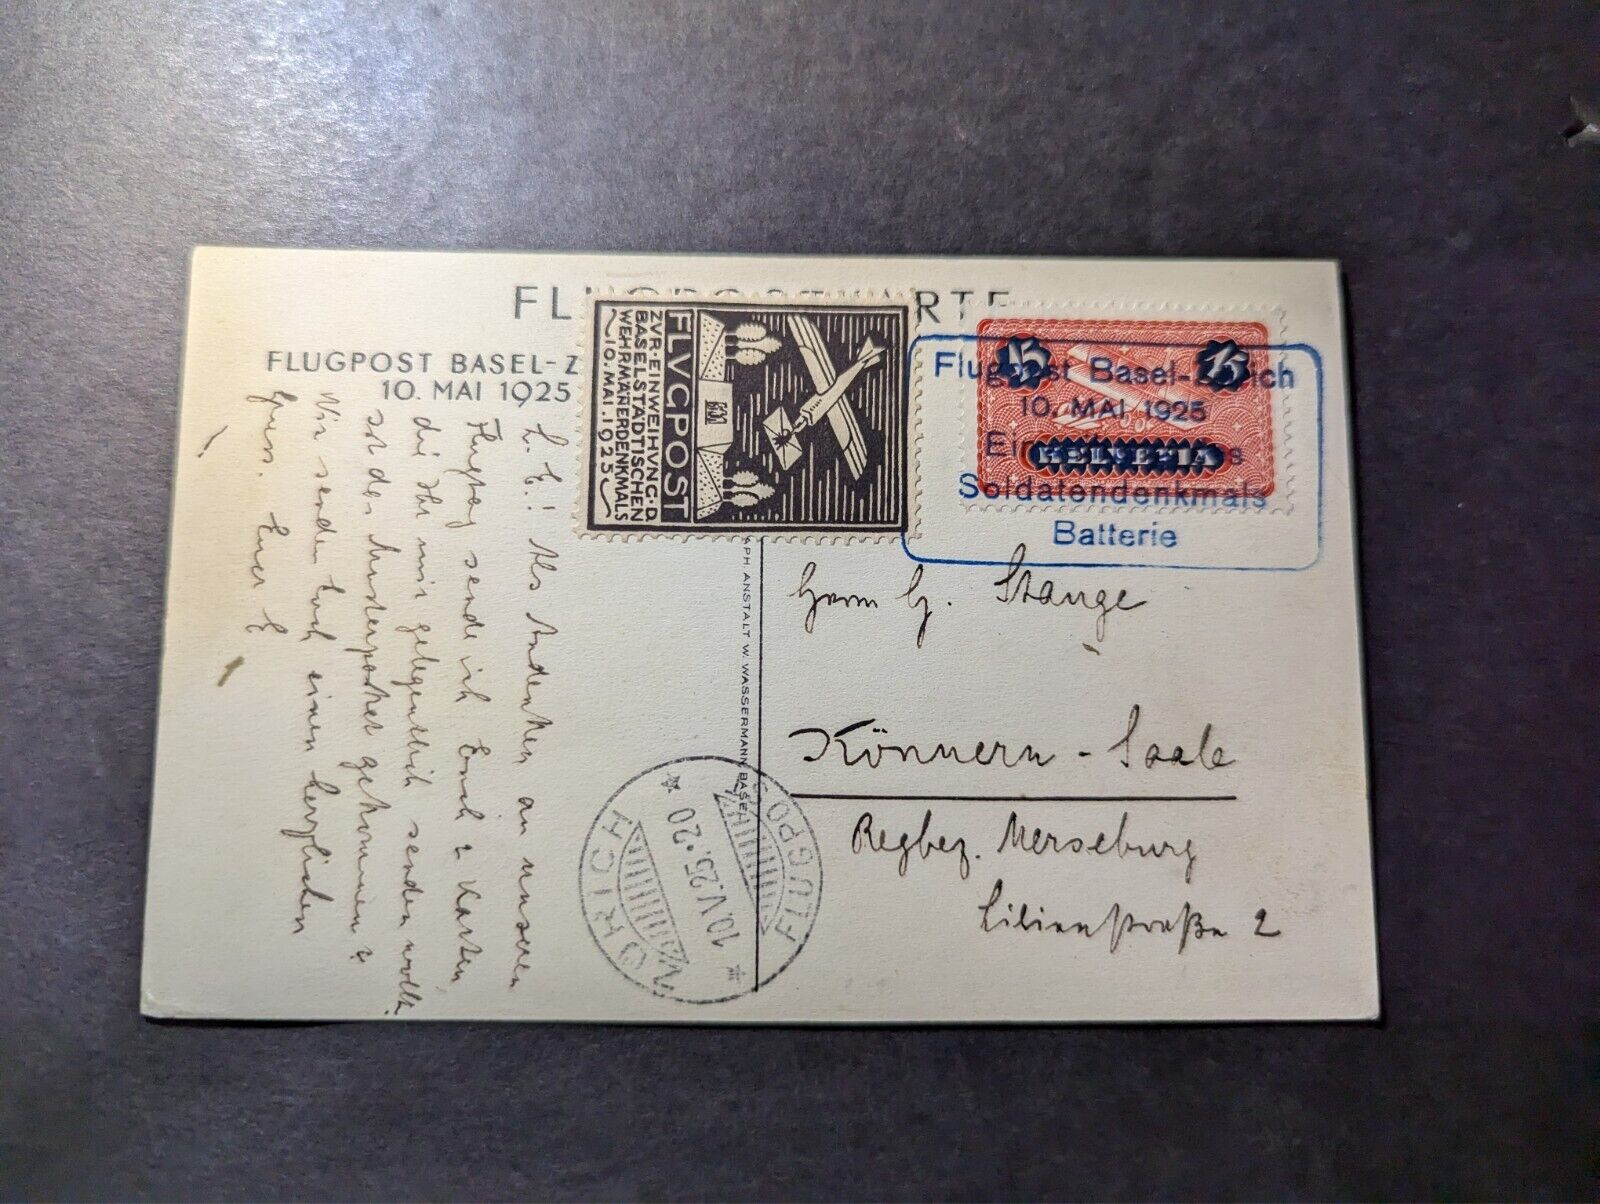 FLUGPOSTKARTE
FLUGPOST BASEL-Z
10. MAI 1925
FLVGPOST
ZVR·EINWEIHVNG·D.
BASELSTÄDTISCHEN
WEHRMÄNNERDENKMALS
10.MAI.1925
15 15
HELVETIA
Flugpost Basel-Zürich
10. MAI 1925
Soldatendenkmals
Batterie
L. E.! Als Andenken an unseren
Flugtag sende ich Euch 2 Karten,
die Ihr mir gelegentlich senden wollt.
Ist das Musterpaket gekommen?
Wir senden Euch einen herzlichen
Gruss. Euer E
PH. ANSTALT W. WASSERMANN, BASEL
Herrn G. Stange
Könnern - Saale
Regbez. Merseburg
Lilienstraße 2
ZÜRICH
10.V.25.20
FLUGPO